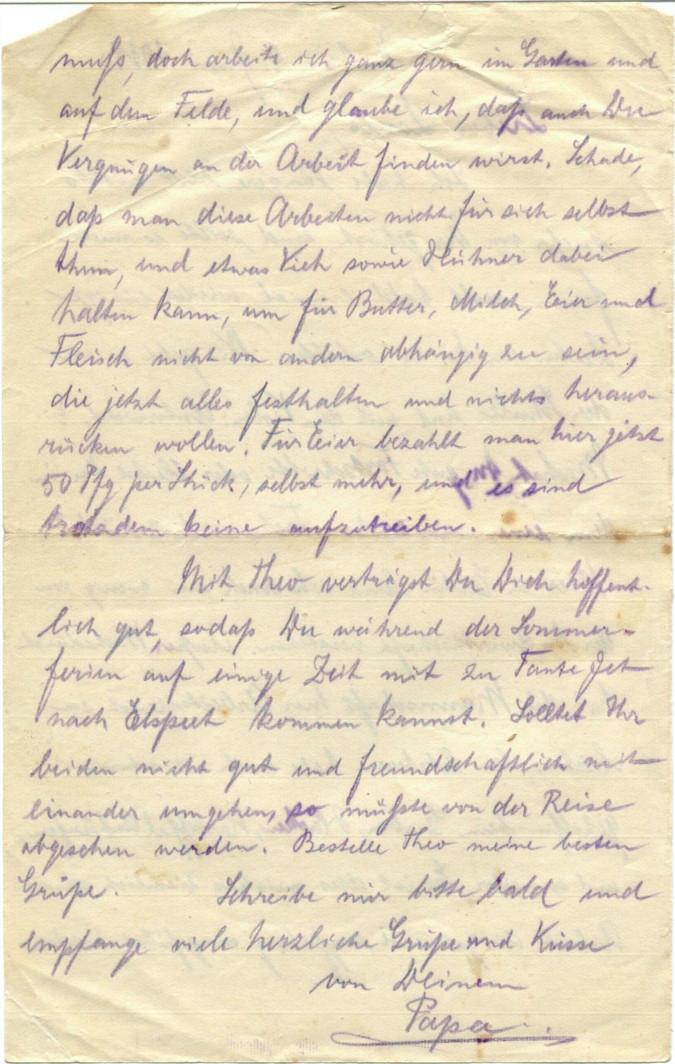 muß, doch arbeite ich ganz gern im Garten und
auf dem Felde, und glaube ich, daß auch Du
Vergnügen an der Arbeit finden wirst. Schade,
daß man diese Arbeiten nicht für sich selbst
thun, und etwas Vieh sowie Hühner dabei
halten kann, um für Butter, Milch, Eier und
Fleisch nicht von andern abhängig zu sein,
die jetzt alles festhalten und nichts heraus-
rücken wollen. Für Eier bezahlt man hier jetzt
50 Pfg per Stück, selbst mehr, und es sind
trotzdem keine aufzutreiben.
Mit Theo verträgst Du Dich hoffent-
lich gut, sodaß Du während der Sommer-
ferien auf einige Zeit mit zu Tante Jet
nach Elspeet kommen kannst. Solltet Ihr
beiden nicht gut und freundschaftlich mit
einander umgehen, so müßte von der Reise
abgesehen werden. Bestelle Theo meine besten
Grüße. Schreibe mir bitte bald und
empfange viele herzliche Grüße und Küsse
von Deinem
Papa.